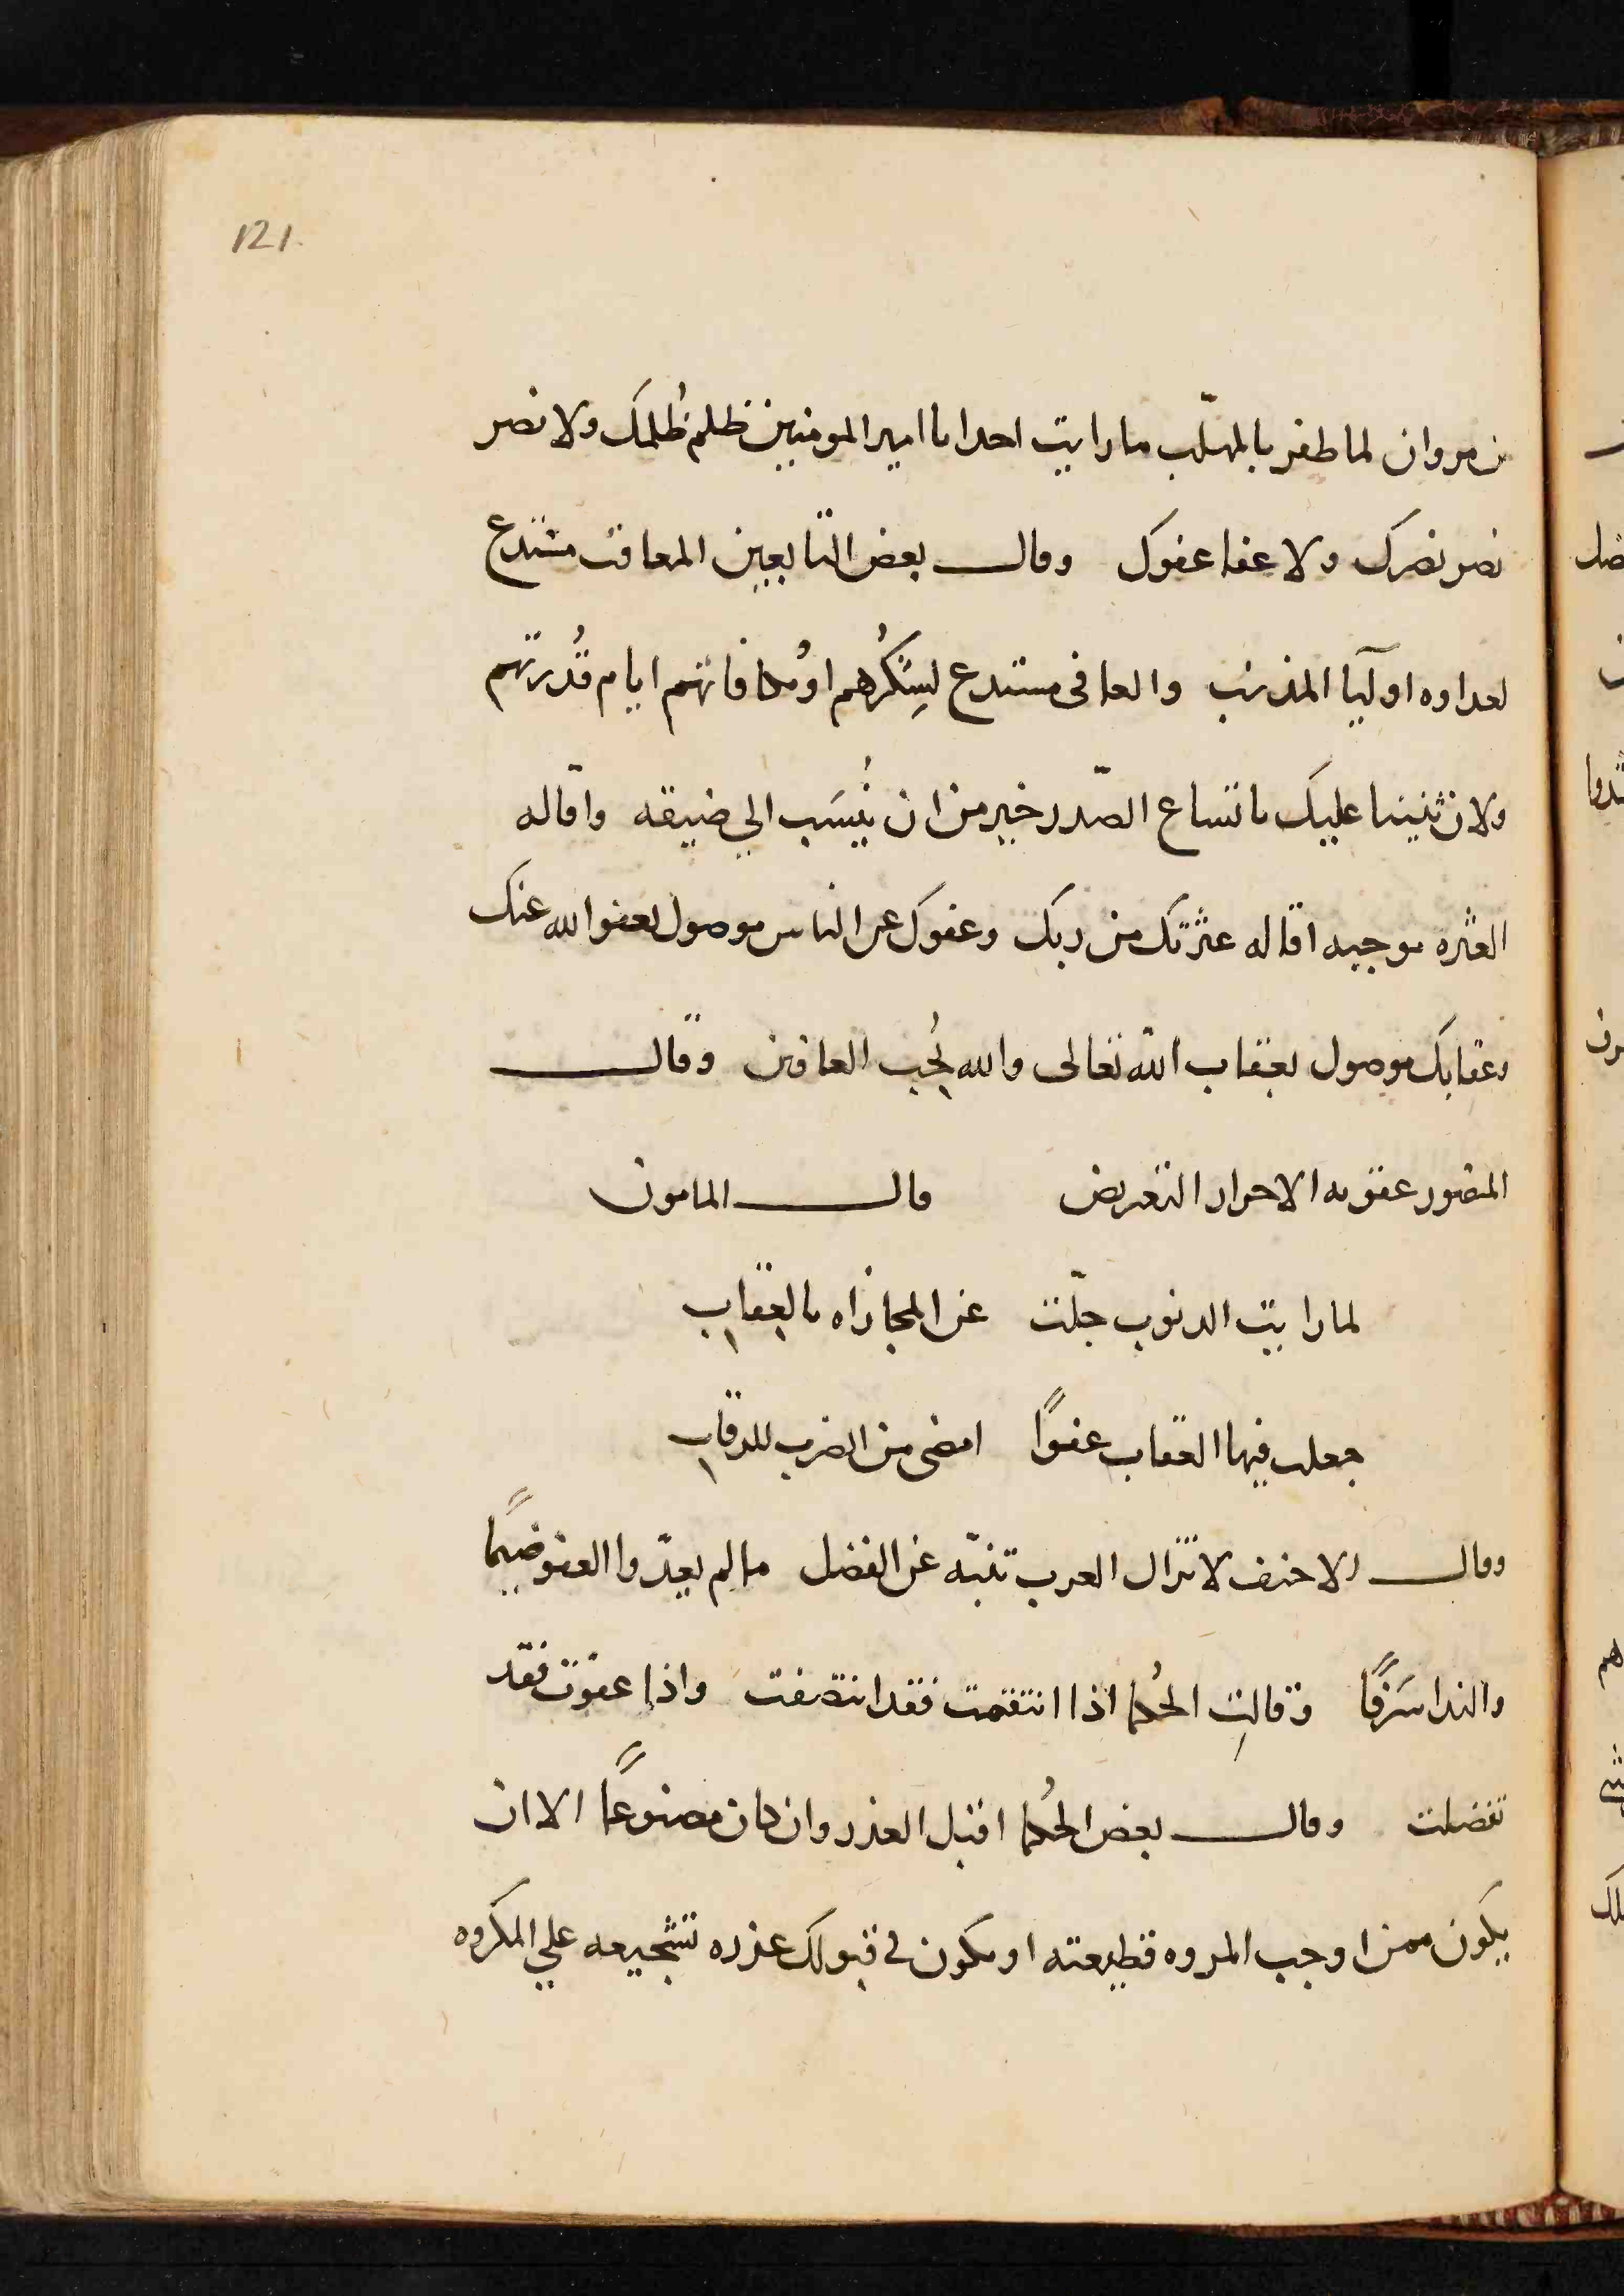 121
بن مروان لما ظفر بالمهلّب ما رايت احدا يا امير المومنين ظلم ظُلمك ولا نصر
نصر نصرك ولا عفا عفوك وقال بعض التابعين المعاقب مستدع
لعداوه اوليآ المذنب والعافى مستدع لشكُرهم او مُكافاتهم ايام قُدرتهم
ولان يثنينا عليك باتساع الصّدر خير من ان يُنسَب الي ضيقه واقاله
العثره موجبه اقاله عثرتك من ربك وعفوك عن الناس موصول بعفو الله عنك
وعقابك موصول بعقاب الله تعالى والله يُحب العافين وقال
المنصور عقوبه الاحرار التعريض قال المامون
لما رايت الذنوب جلّت عن المجازاه بالعقاب
جعلت فيها العقاب عفوًا امضى من الضرب للرقاب
وقال الاحنف لا تزال العرب تنبّه عن الفضل ما لم يعدّوا العفو ضيمًا
والندا سَرَفًا وقالتِ الحُكما اذا انتقمت فقد انتصفت واذا عفوت فقد
تفضلت وقال بعض الحُكما اقبل العذر وان كان مصنوعًا الا ان
يكون ممن اوجب المروه قطيعته او يكون في قبولك عذره تشجيعه علي المكروه